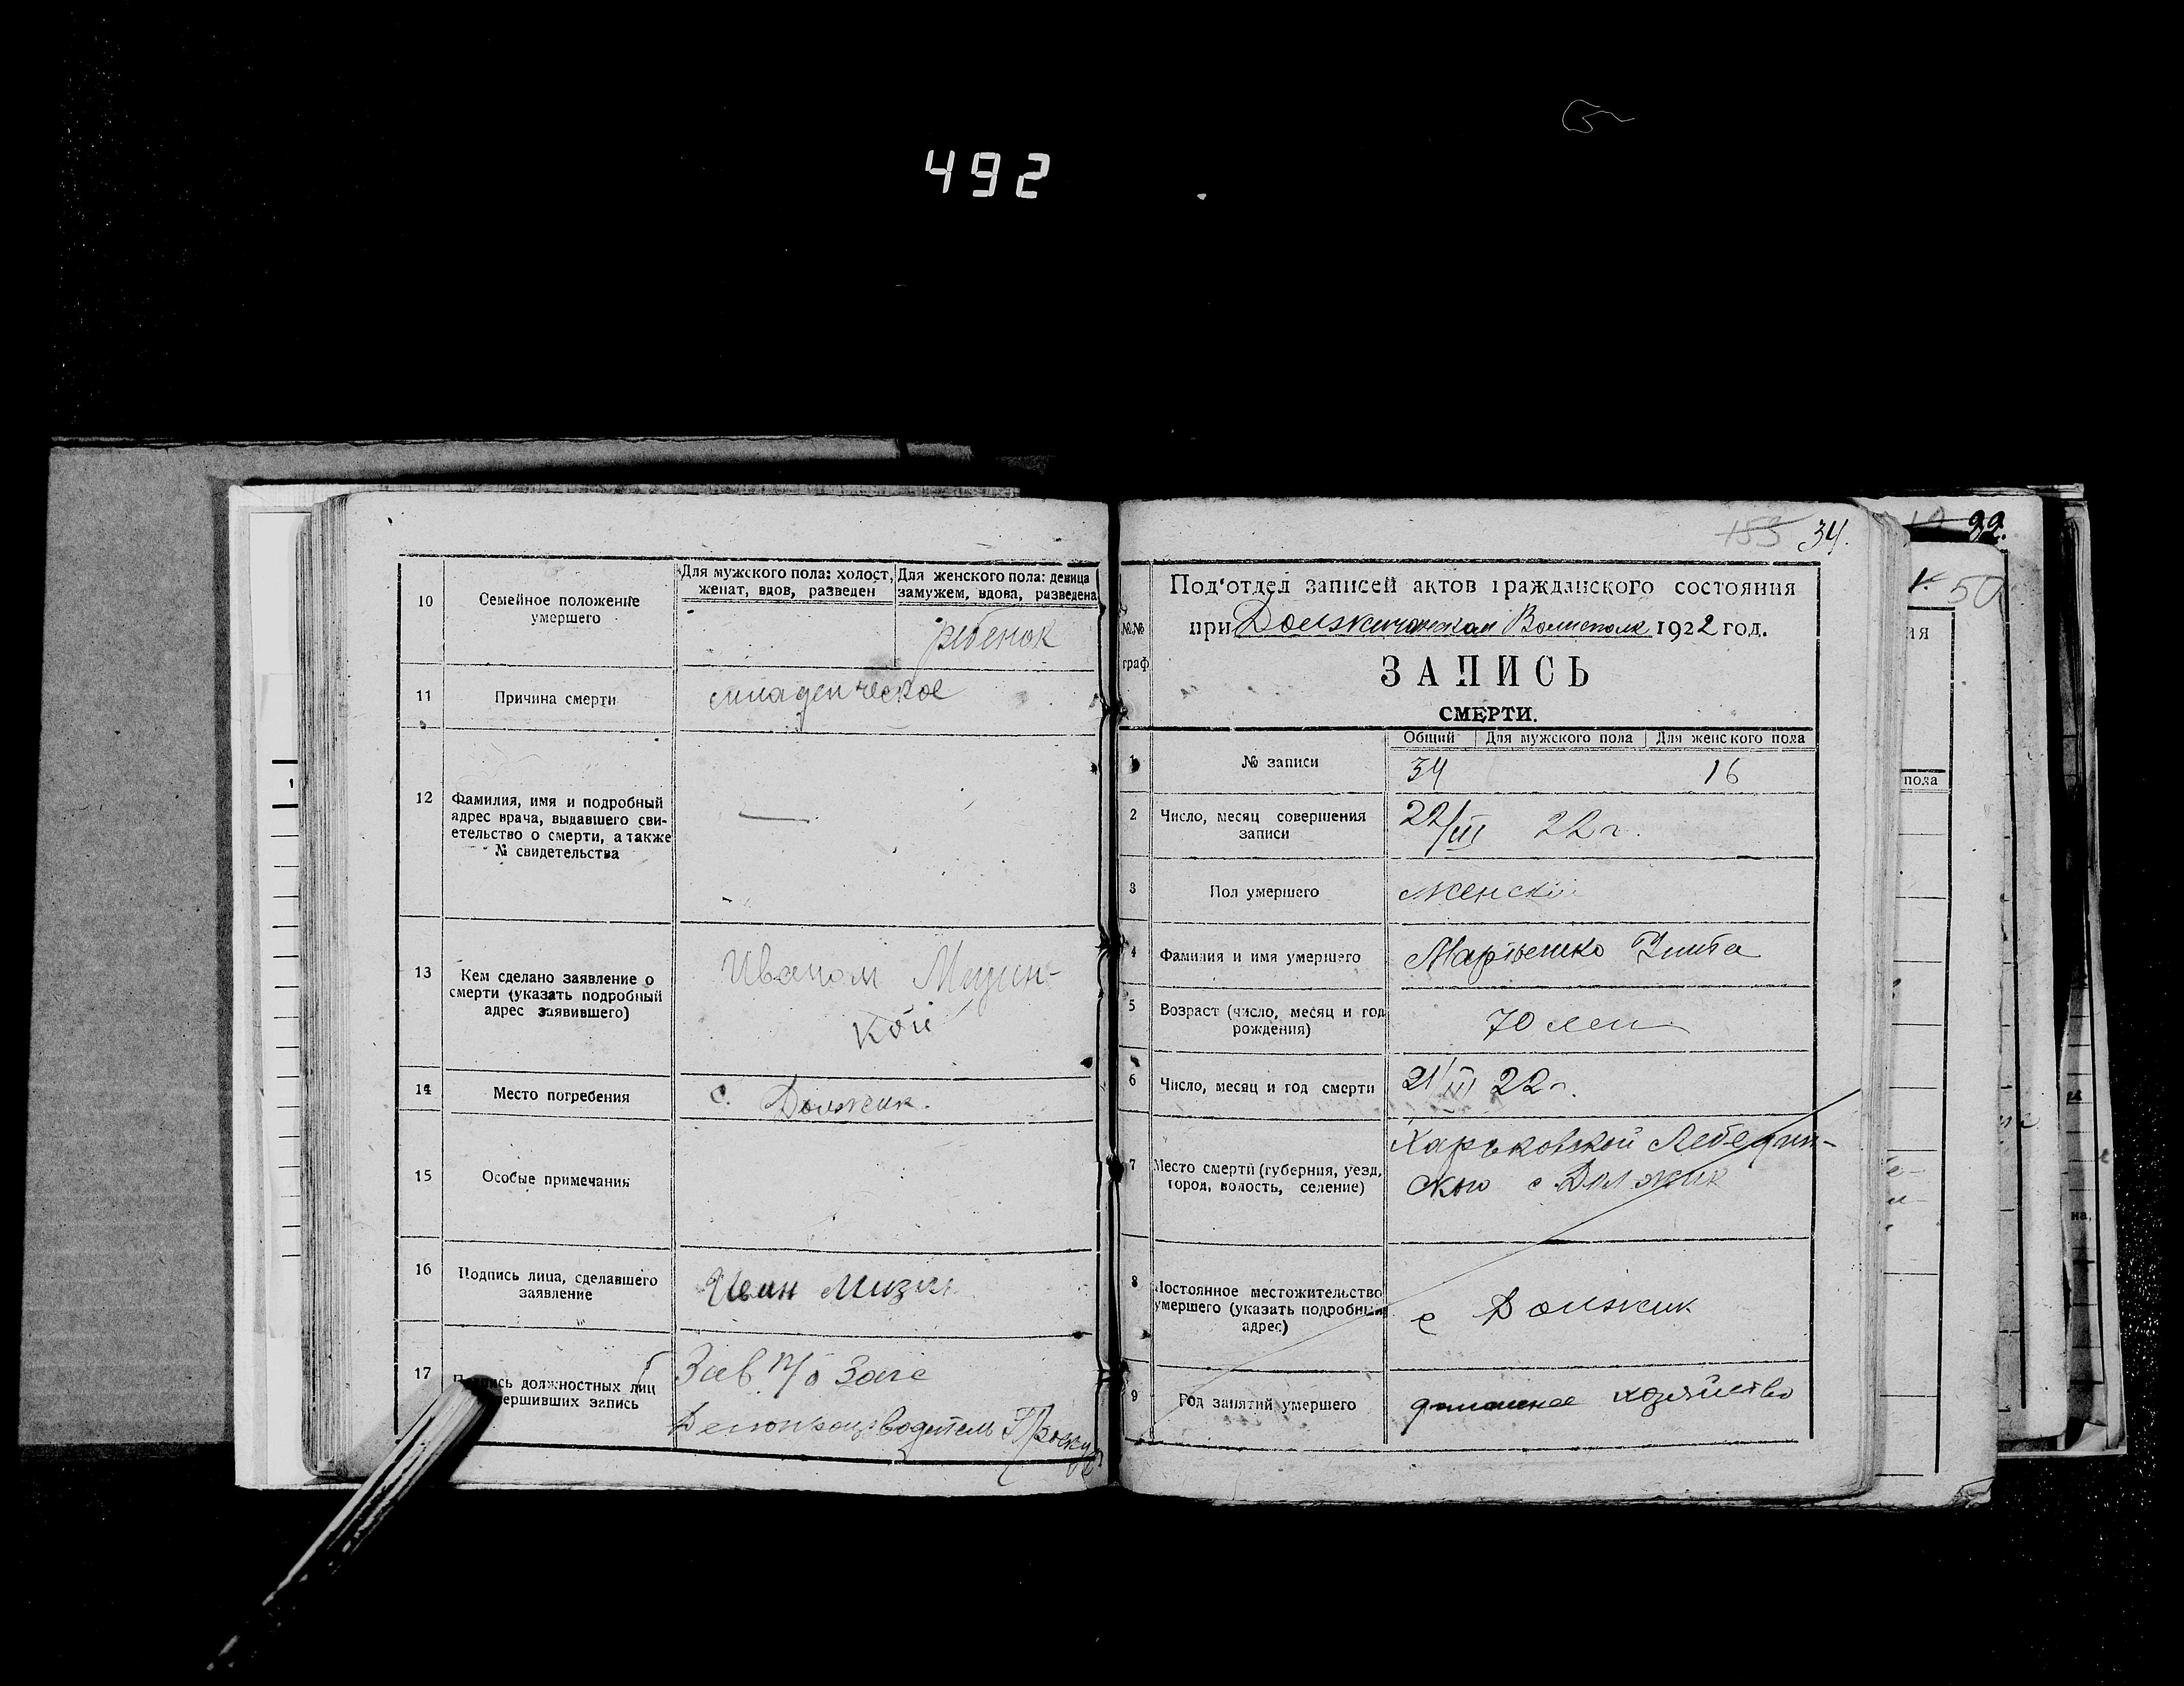 492
10
Семейное положение
умершего
Для мужского пола: холост,
женат, вдов, разведен
Для женского пола: девица
замужем, вдова, разведена
ребенок
11
Причина смерти
младенческое
12
Фамилия, имя и подробный
адрес врача, выдавшего сви-
етельство о смерти, а также
№ свидетельства
13
Кем сделано заявление о
смерти (указать подробный
адрес заявившего)
Иваном
кой
14
Место погребения
с. Должик.
15
Особые примечания
16
Подпись лица, сделавшего
заявление
Иван
17
должностных лиц
вершивших запись
Зав п/о Загс
Делопроизводитель
153 34.
Под'отдел записей актов гражданского состояния
при 1922 год.
№№
граф
ЗАПИСЬ
СМЕРТИ.
Общий Для мужского пола Для женского пола
1
№ записи
34 16
2
Число, месяц совершения
записи
22/III 22 г.
3
Пол умершего
женскій
4
Фамилия и имя умершего
5
Возраст (число, месяц и год
рождения)
70 лет
6
Число, месяц и год смерти
21/III 22 г.
7
Место смерти (губерния, уезд,
город, волость, селение)
Харьковской Лебедин-
ского с Должик
8
Постоянное местожительство
умершего (указать подробный
адрес)
с Должик
9
Род занятий умершего
домашнее хозяйство
50
ия
пола
на,